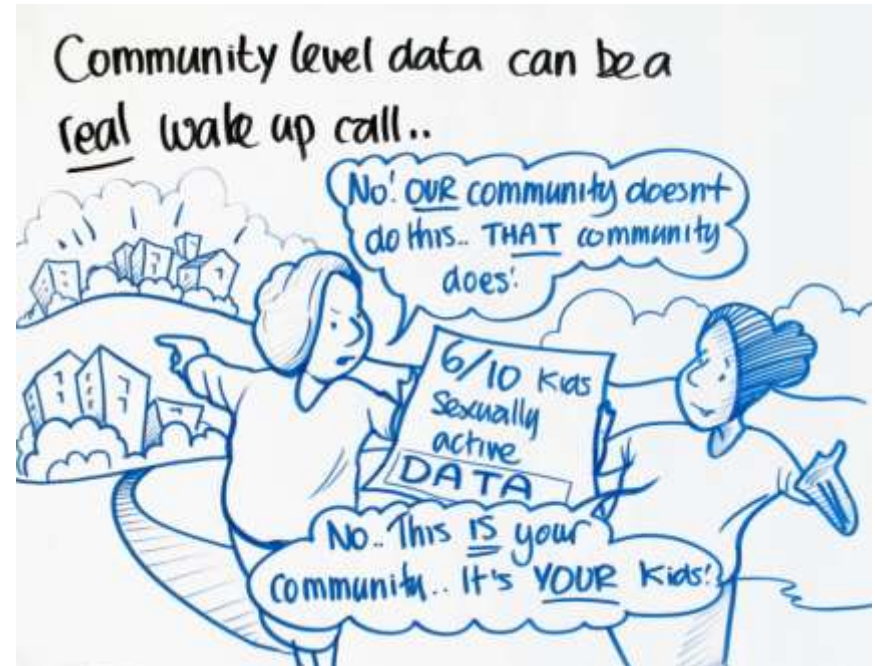 Community level data can be a
real wake up call..
No! OUR community doesnt
do this.. THAT community
does!
6/10 Kids
Sexually
active
DATA
No.. This IS your
community.. It's YOUR Kids!